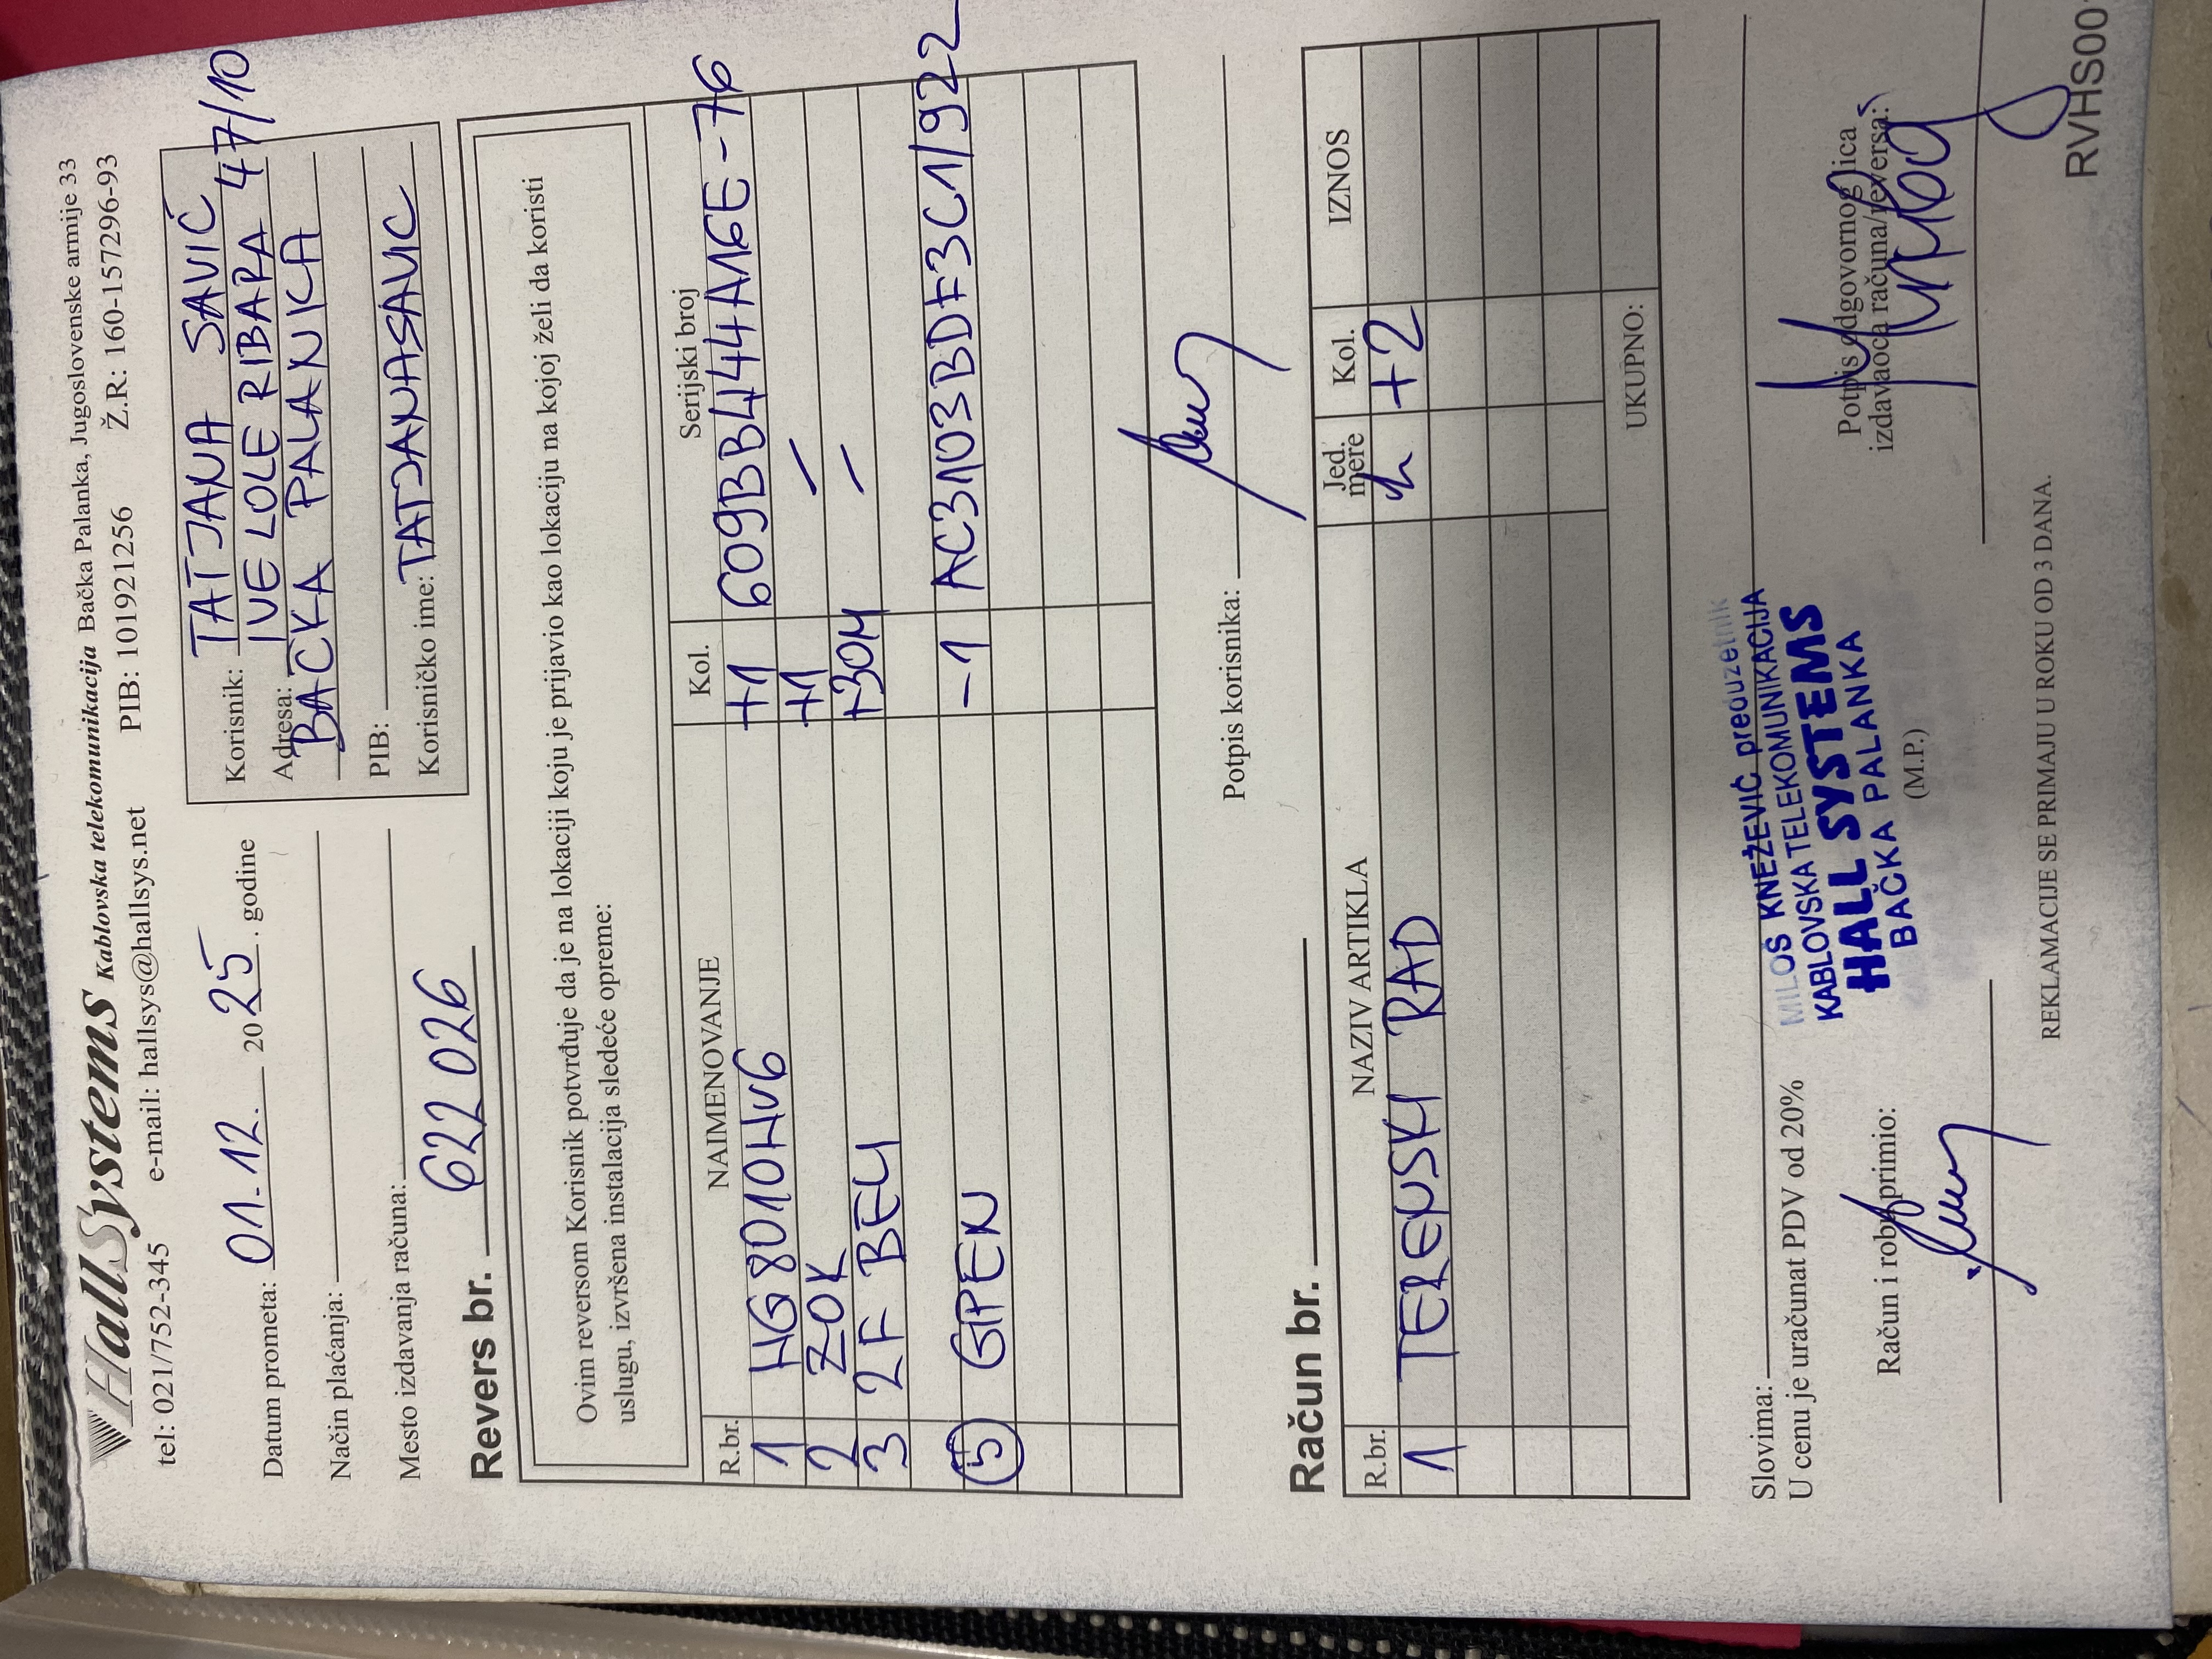 HallSystems Kablovska telekomunikacija Bačka Palanka, Jugoslovenske armije 33
tel: 021/752-345 e-mail: hallsys@hallsys.net PIB: 101921256 Ž.R: 160-157296-93
Datum prometa: 01.12. 2025. godine
Način plaćanja:
Mesto izdavanja računa:
Korisnik: TATJANA SAVIĆ
Adresa: IVE LOLE RIBARA 47/10
BAČKA PALANKA
PIB:
Korisničko ime: TATJANASAVIC
Revers br. 622026
Ovim reversom Korisnik potvrđuje da je na lokaciji koju je prijavio kao lokaciju na kojoj želi da koristi
uslugu, izvršena instalacija sledeće opreme:
R.br. NAIMENOVANJE Kol. Serijski broj
1 HG8010Hv6 +1 609BB444A16E-76
2 ZOK +1 /
3 2F BELI +30M /
5 GPEN -1 AC3103BDF3C1/922
Potpis korisnika:
Račun br.
R.br. NAZIV ARTIKLA Jed. mere Kol. IZNOS
1 TERENSKI RAD h +2
UKUPNO:
Slovima:
U cenu je uračunat PDV od 20%
MILOŠ KNEŽEVIĆ preduzetnik
KABLOVSKA TELEKOMUNIKACIJA
HALL SYSTEMS
BAČKA PALANKA
(M.P.)
Račun i robu primio:
Potpis odgovornog lica
izdavaoca računa/reversa:
REKLAMACIJE SE PRIMAJU U ROKU OD 3 DANA.
RVHS001